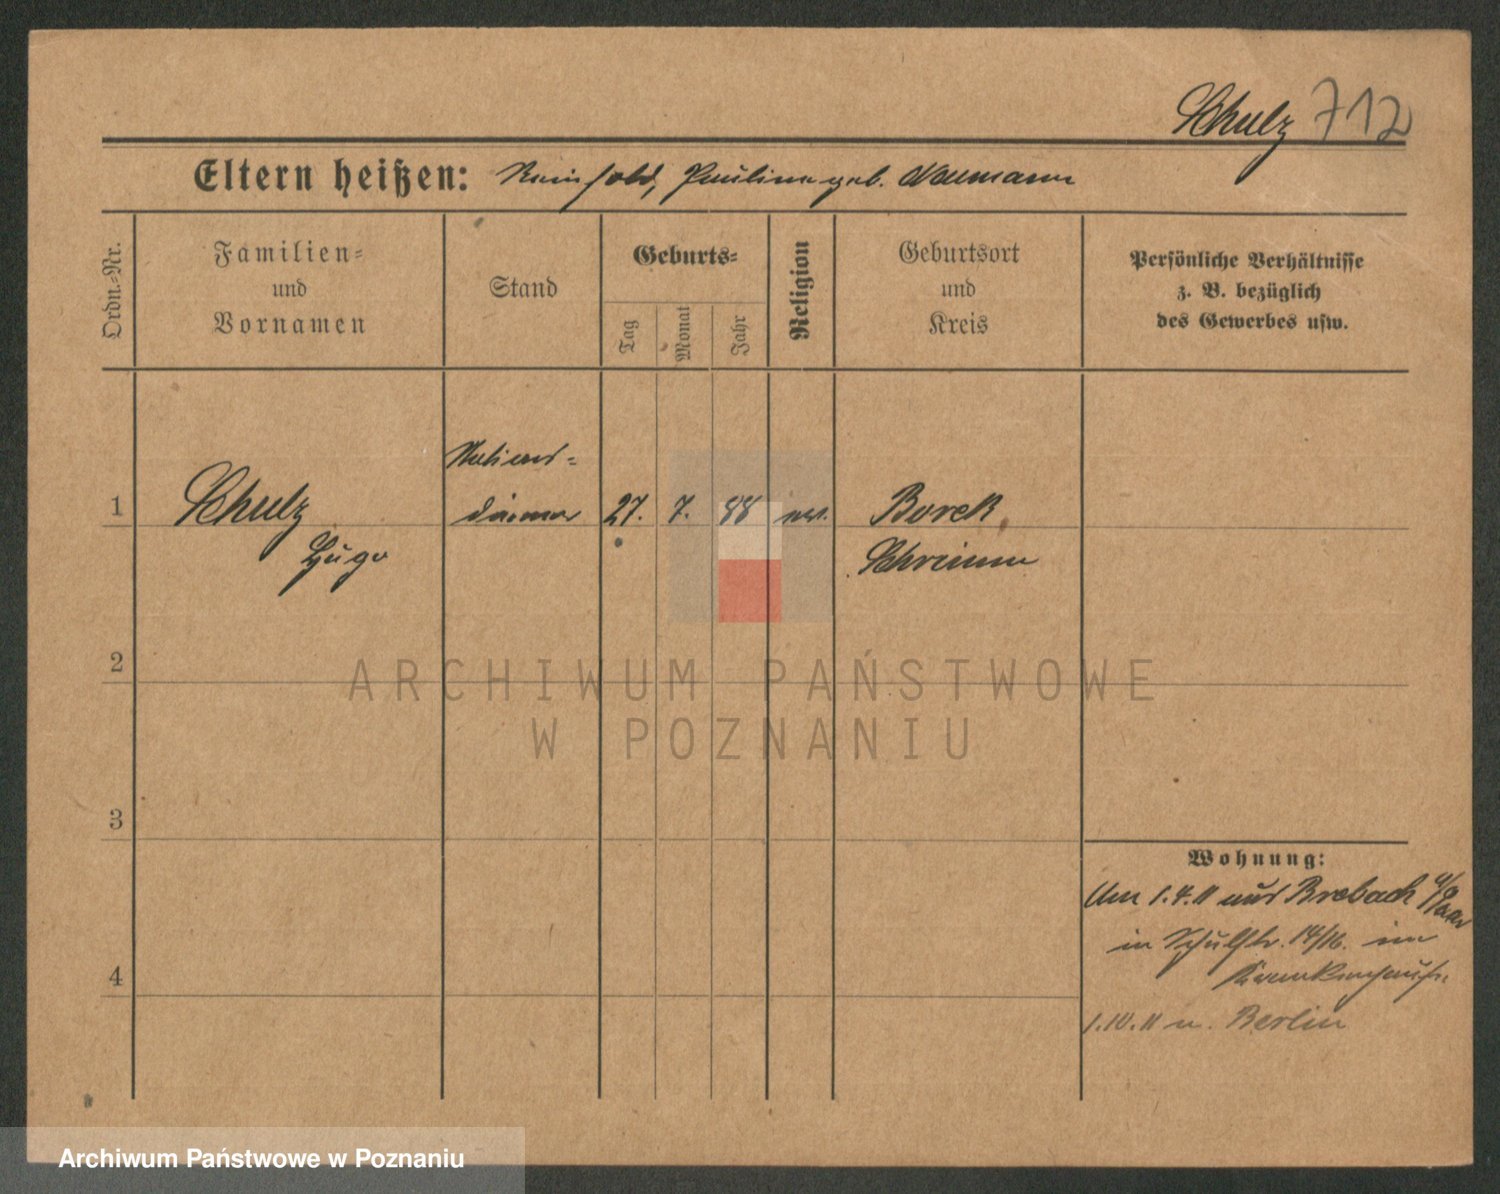 Schulz 712
Eltern heißen: Reinhold, Pauline geb. Naumann
Ordn.-Nr.
Familien-
und
Vornamen
Stand
Geburts-
Tag
Monat
Jahr
Religion
Geburtsort
und
Kreis
Persönliche Verhältnisse
z. B. bezüglich
des Gewerbes usw.
1
Schulz
Hugo
27. 7. 88 ev.
Borek
Schrimm
2
3
4
Wohnung:
Am 1.4.11 aus Brebach a/Saar
in Schulstr. 14/16. im
Krankenhause
1.10.11 n. Berlin
ARCHIWUM PAŃSTWOWE
W POZNANIU
Archiwum Państwowe w Poznaniu